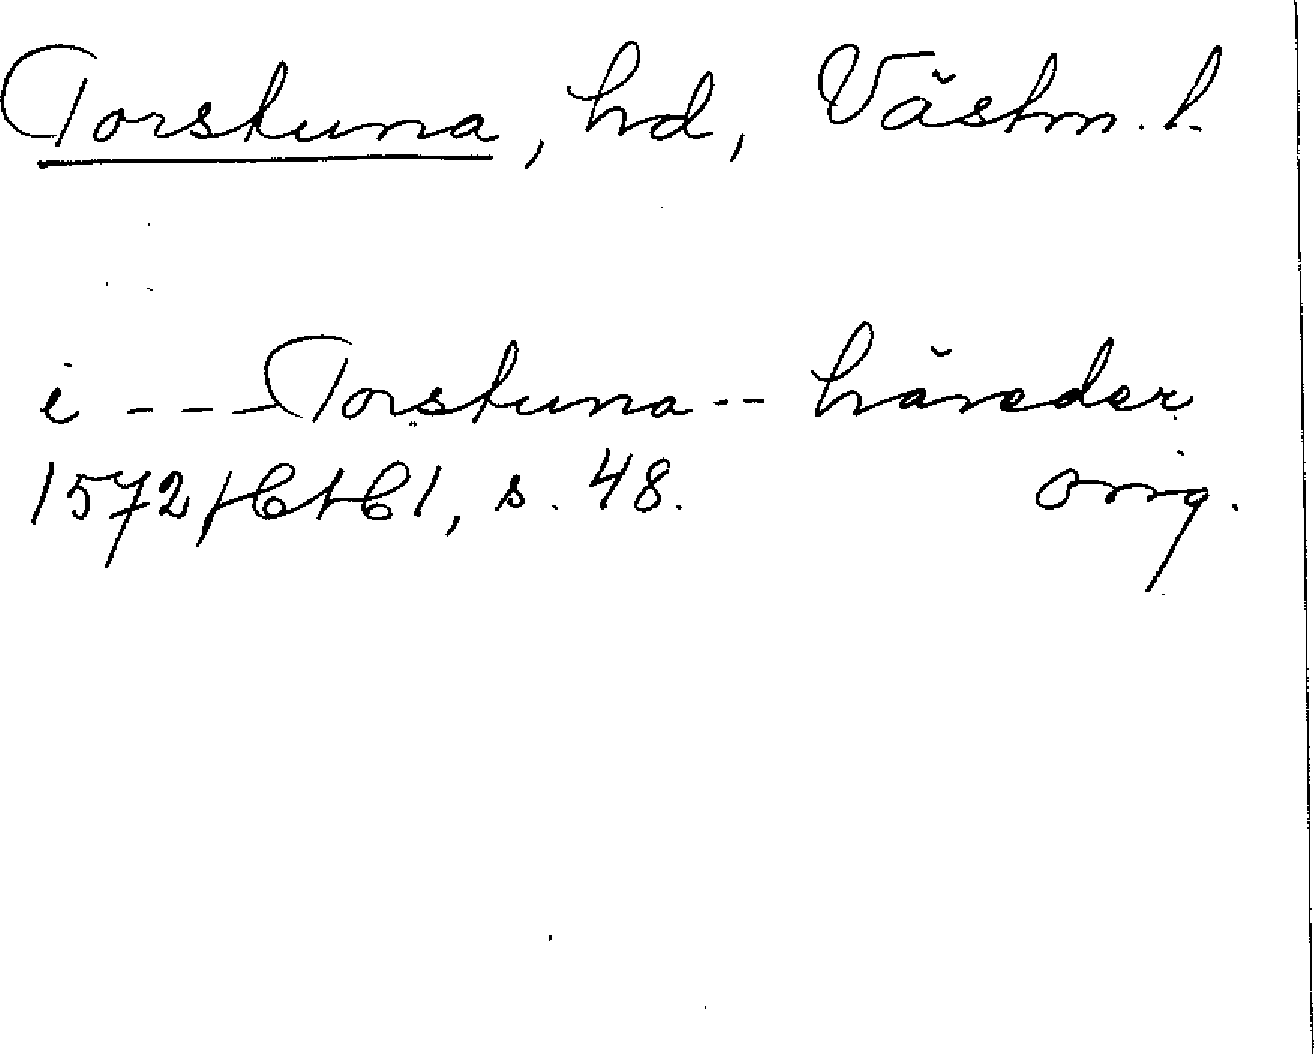 Torstuna, hd, Västm. l.
i --- Torstuna -- häreder
1572 HH 1, s. 48. orig.